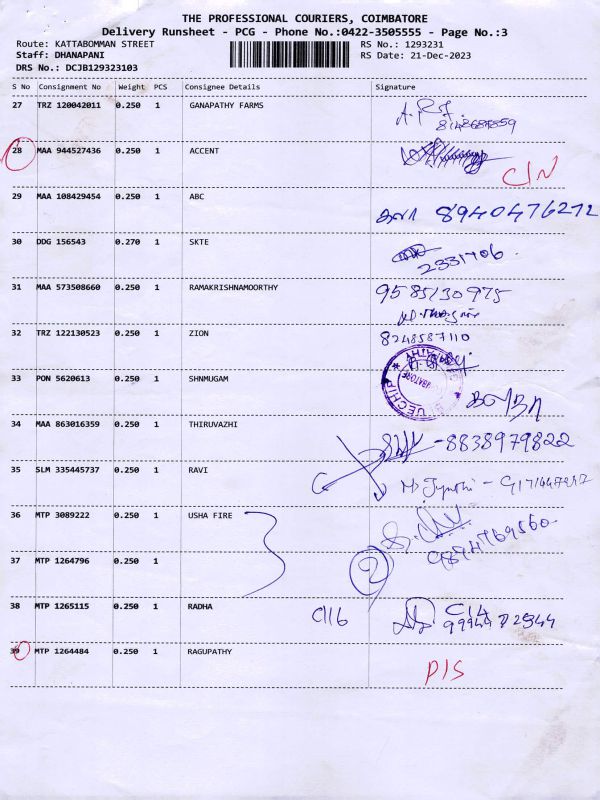 THE PROFESSIONAL COURIERS, COIMBATORE
Delivery Runsheet - PCG - Phone No.:0422-3505555 - Page No.:3
Route: KATTABOMMAN STREET RS No.: 1293231
Staff: DHANAPANI RS Date: 21-Dec-2023
DRS No.: DCJB129323103
S No Consignment No Weight PCS Consignee Details Signature
27 TRZ 120042011 0.250 1 GANAPATHY FARMS
28 MAA 944527436 0.250 1 ACCENT
C/N
29 MAA 108429454 0.250 1 ABC
8940476272
30 DDG 156543 0.270 1 SKTE
2331706
31 MAA 573508660 0.250 1 RAMAKRISHNAMOORTHY
9585130975
32 TRZ 122130523 0.250 1 ZION
8248587110
33 PON 5620613 0.250 1 SHNMUGAM
34 MAA 863016359 0.250 1 THIRUVAZHI
- 8838979822
35 SLM 335445737 0.250 1 RAVI
36 MTP 3089222 0.250 1 USHA FIRE
9894769560
37 MTP 1264796 0.250 1
2
38 MTP 1265115 0.250 1 RADHA
39 MTP 1264484 0.250 1 RAGUPATHY
D/S